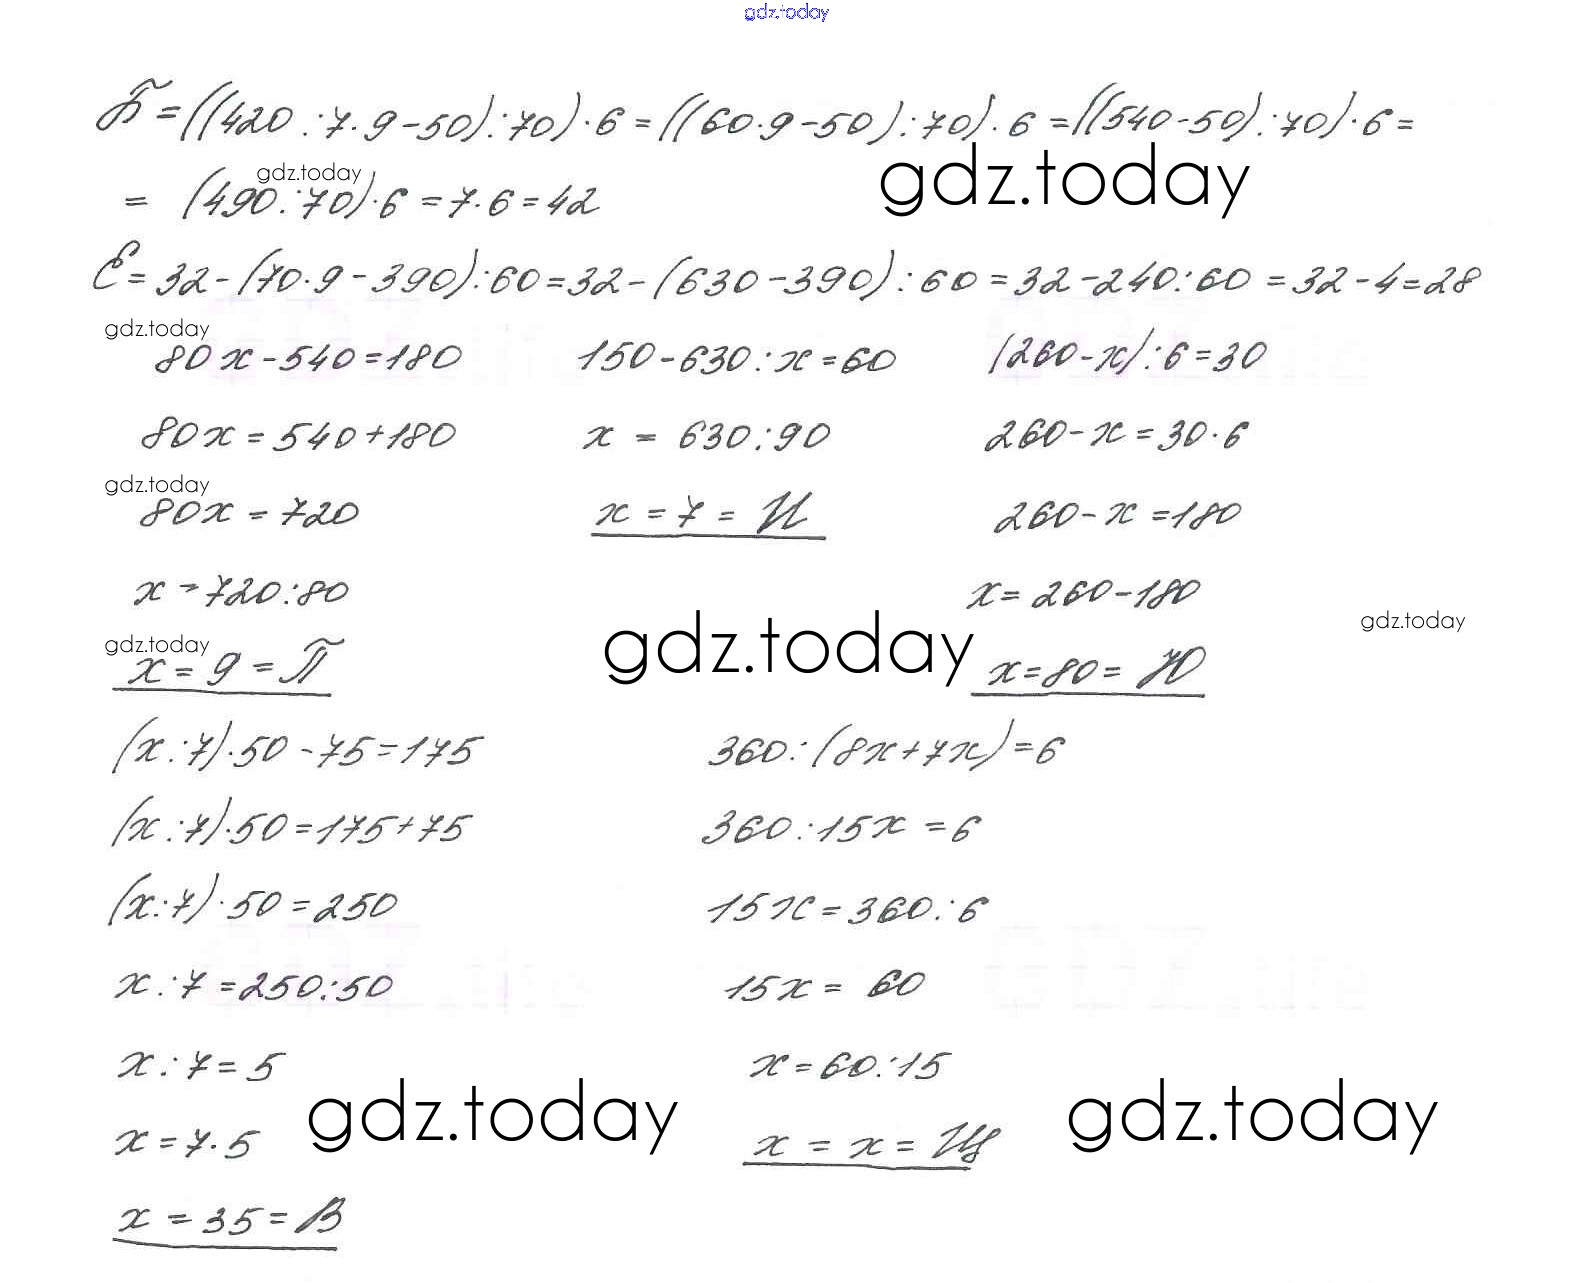 gdz.today
Б = ((420 : 7 · 9 - 50) : 70) · 6 = ((60 · 9 - 50) : 70) · 6 = ((540 - 50) : 70) · 6 =
gdz.today
gdz.today
= (490 : 70) · 6 = 7 · 6 = 42
Е = 32 - (70 · 9 - 390) : 60 = 32 - (630 - 390) : 60 = 32 - 240 : 60 = 32 - 4 = 28
gdz.today
80x - 540 = 180
80x = 540 + 180
gdz.today
80x = 720
x = 720 : 80
gdz.today
x = 9 = П
150 - 630 : x = 60
x = 630 : 90
x = 7 = И
(260 - x) : 6 = 30
260 - x = 30 · 6
260 - x = 180
x = 260 - 180
x = 80 = Ю
gdz.today
gdz.today
(x : 7) · 50 - 75 = 175
(x : 7) · 50 = 175 + 75
(x : 7) · 50 = 250
x : 7 = 250 : 50
x : 7 = 5
x = 7 · 5
x = 35 = В
360 : (8x + 7x) = 6
360 : 15x = 6
15x = 360 : 6
15x = 60
x = 60 : 15
x = x = Щ
gdz.today
gdz.today